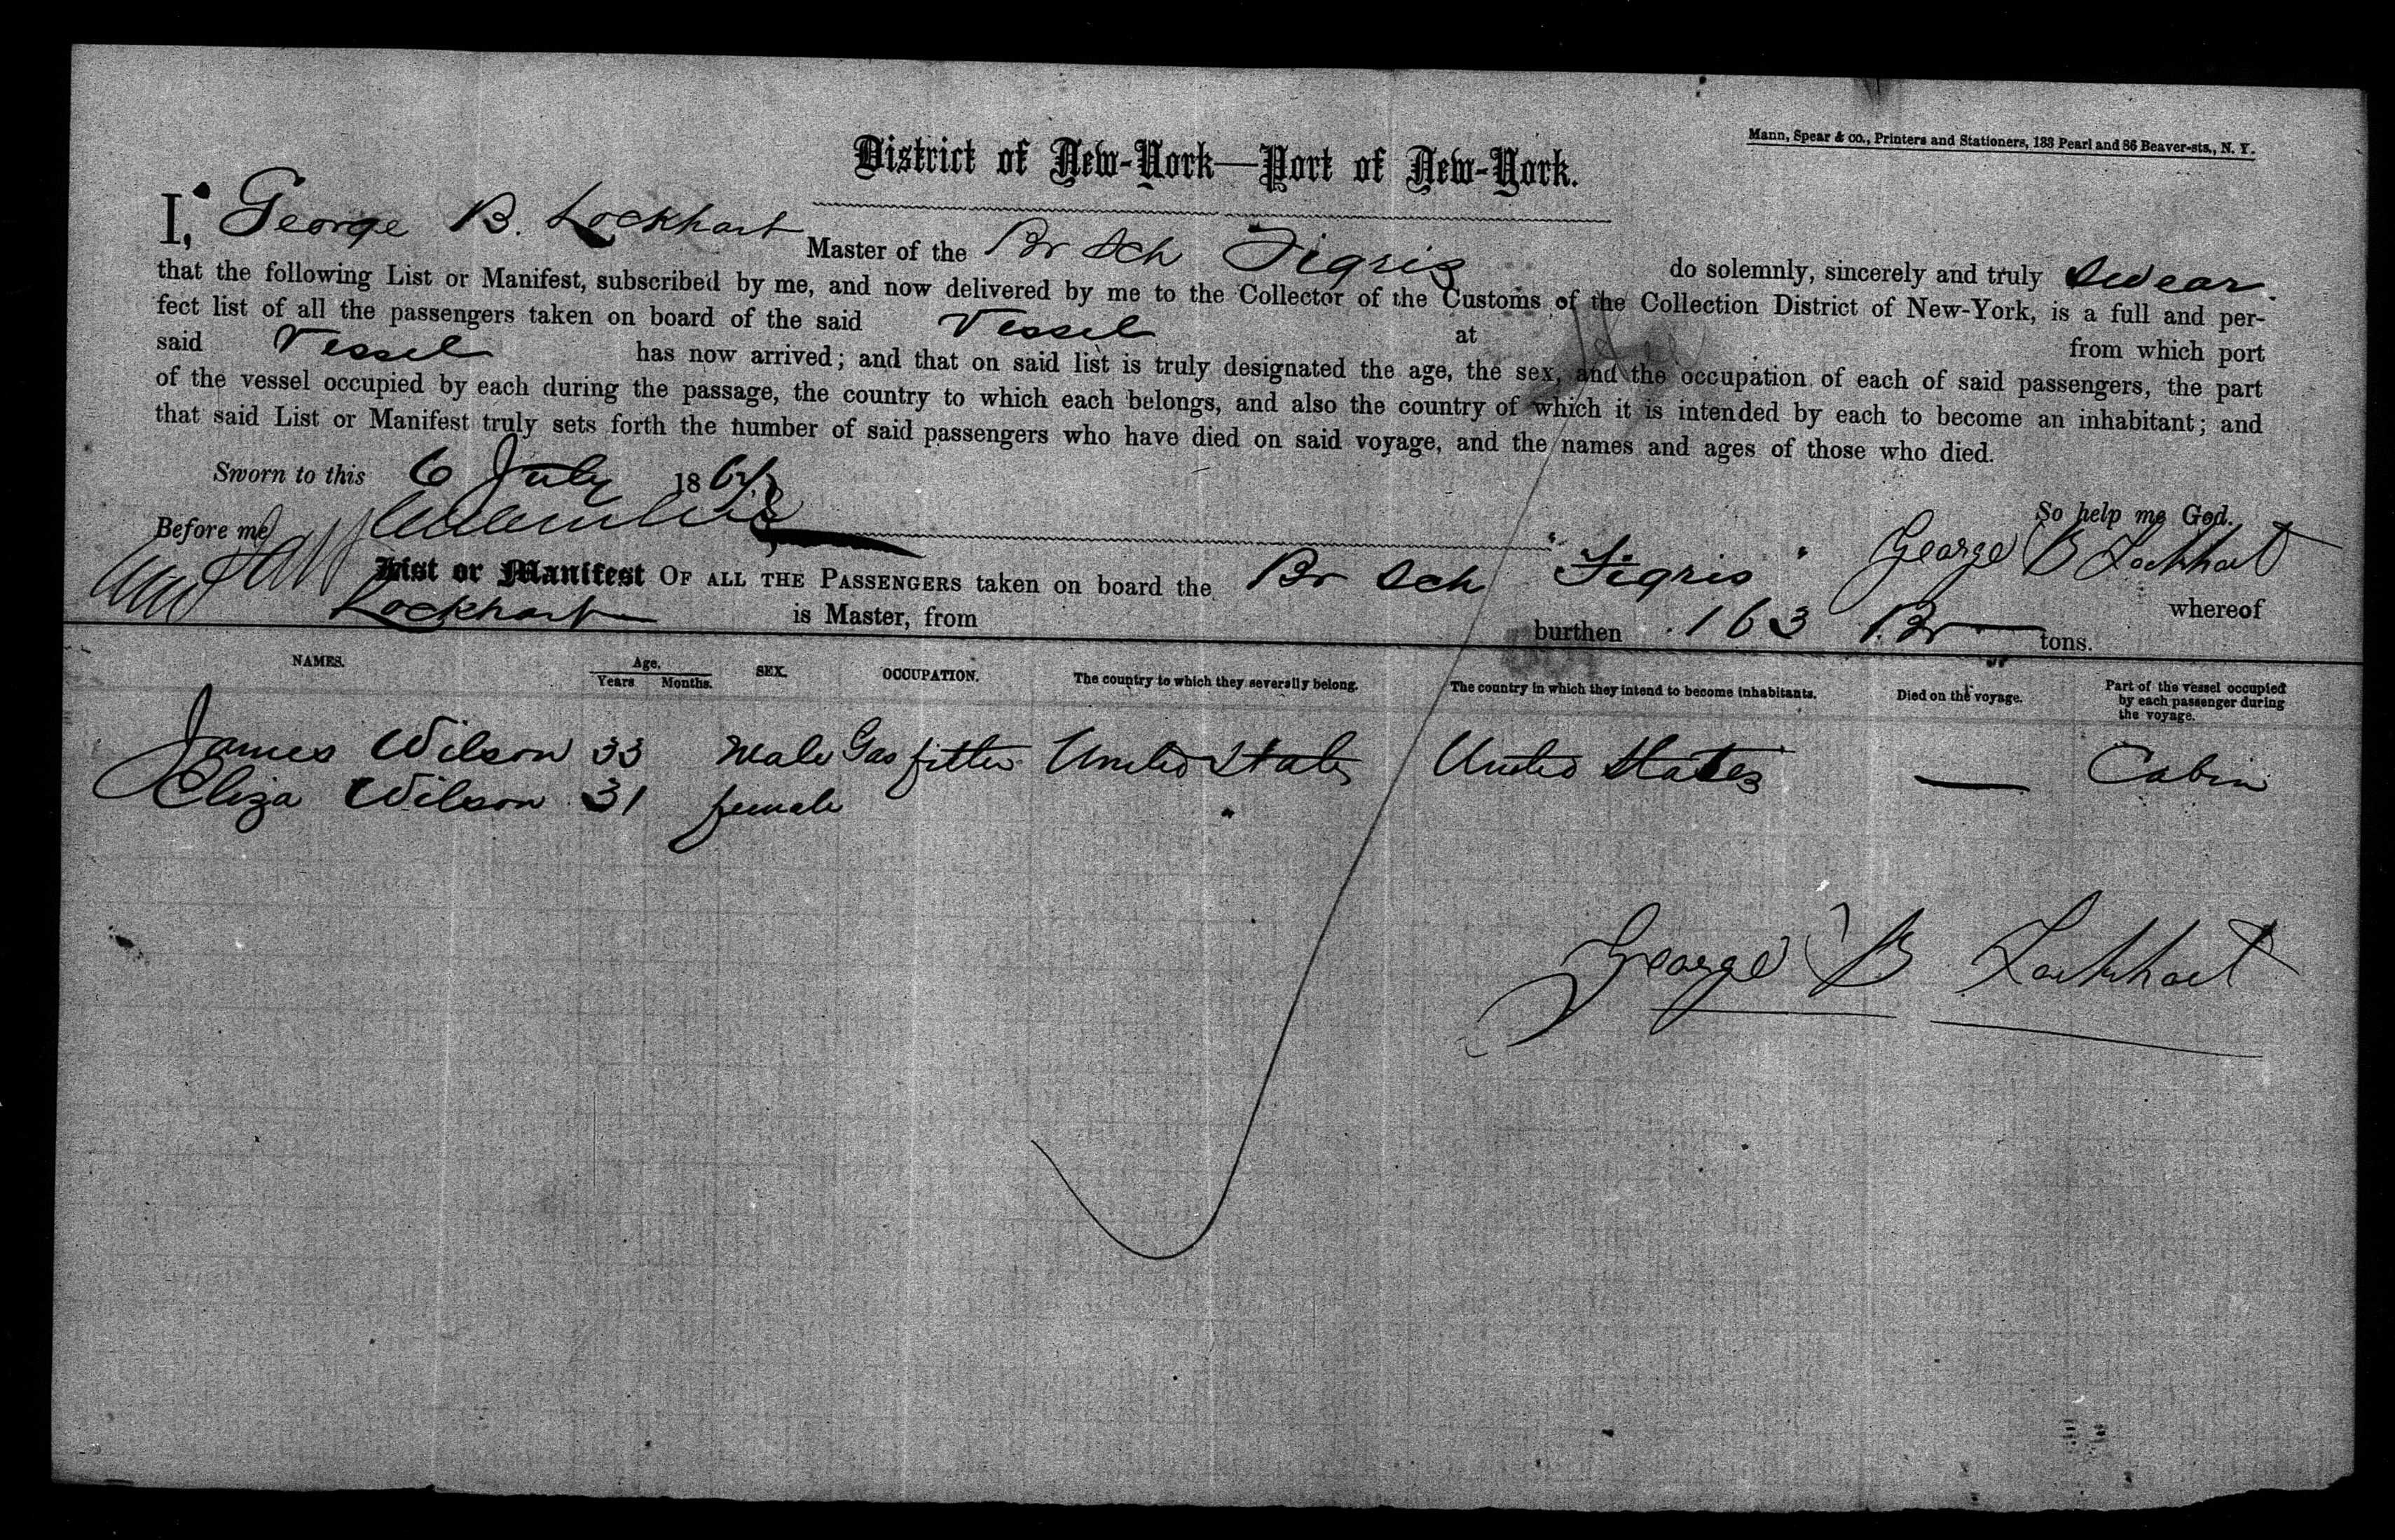 Mann, Spear & co., Printers and Stationers, 133 Pearl and 86 Beaver-sts., N. Y.
District of New-York—Port of New-York.
I, George B. Lockhart Master of the Br Sch Tigris do solemnly, sincerely and truly swear
that the following List or Manifest, subscribed by me, and now delivered by me to the Collector of the Customs of the Collection District of New-York, is a full and per-
fect list of all the passengers taken on board of the said Vessel at from which port
said Vessel has now arrived; and that on said list is truly designated the age, the sex, and the occupation of each of said passengers, the part
of the vessel occupied by each during the passage, the country to which each belongs, and also the country of which it is intended by each to become an inhabitant; and
that said List or Manifest truly sets forth the number of said passengers who have died on said voyage, and the names and ages of those who died.
Sworn to this 6 July 186
So help me God.
Before me
George B Lockhart
List or Manifest OF ALL THE PASSENGERS taken on board the Br Sch "Tigris" whereof
Lockhart is Master, from burthen 163 Br tons.
NAMES. Age. Years Months. SEX. OCCUPATION. The country to which they severally belong. The country in which they intend to become inhabitants. Died on the voyage. Part of the vessel occupied by each passenger during the voyage.
James Wilson 33 Male Gas fitter United States United States — Cabin
Eliza Wilson 31 female "
George B Lockhart